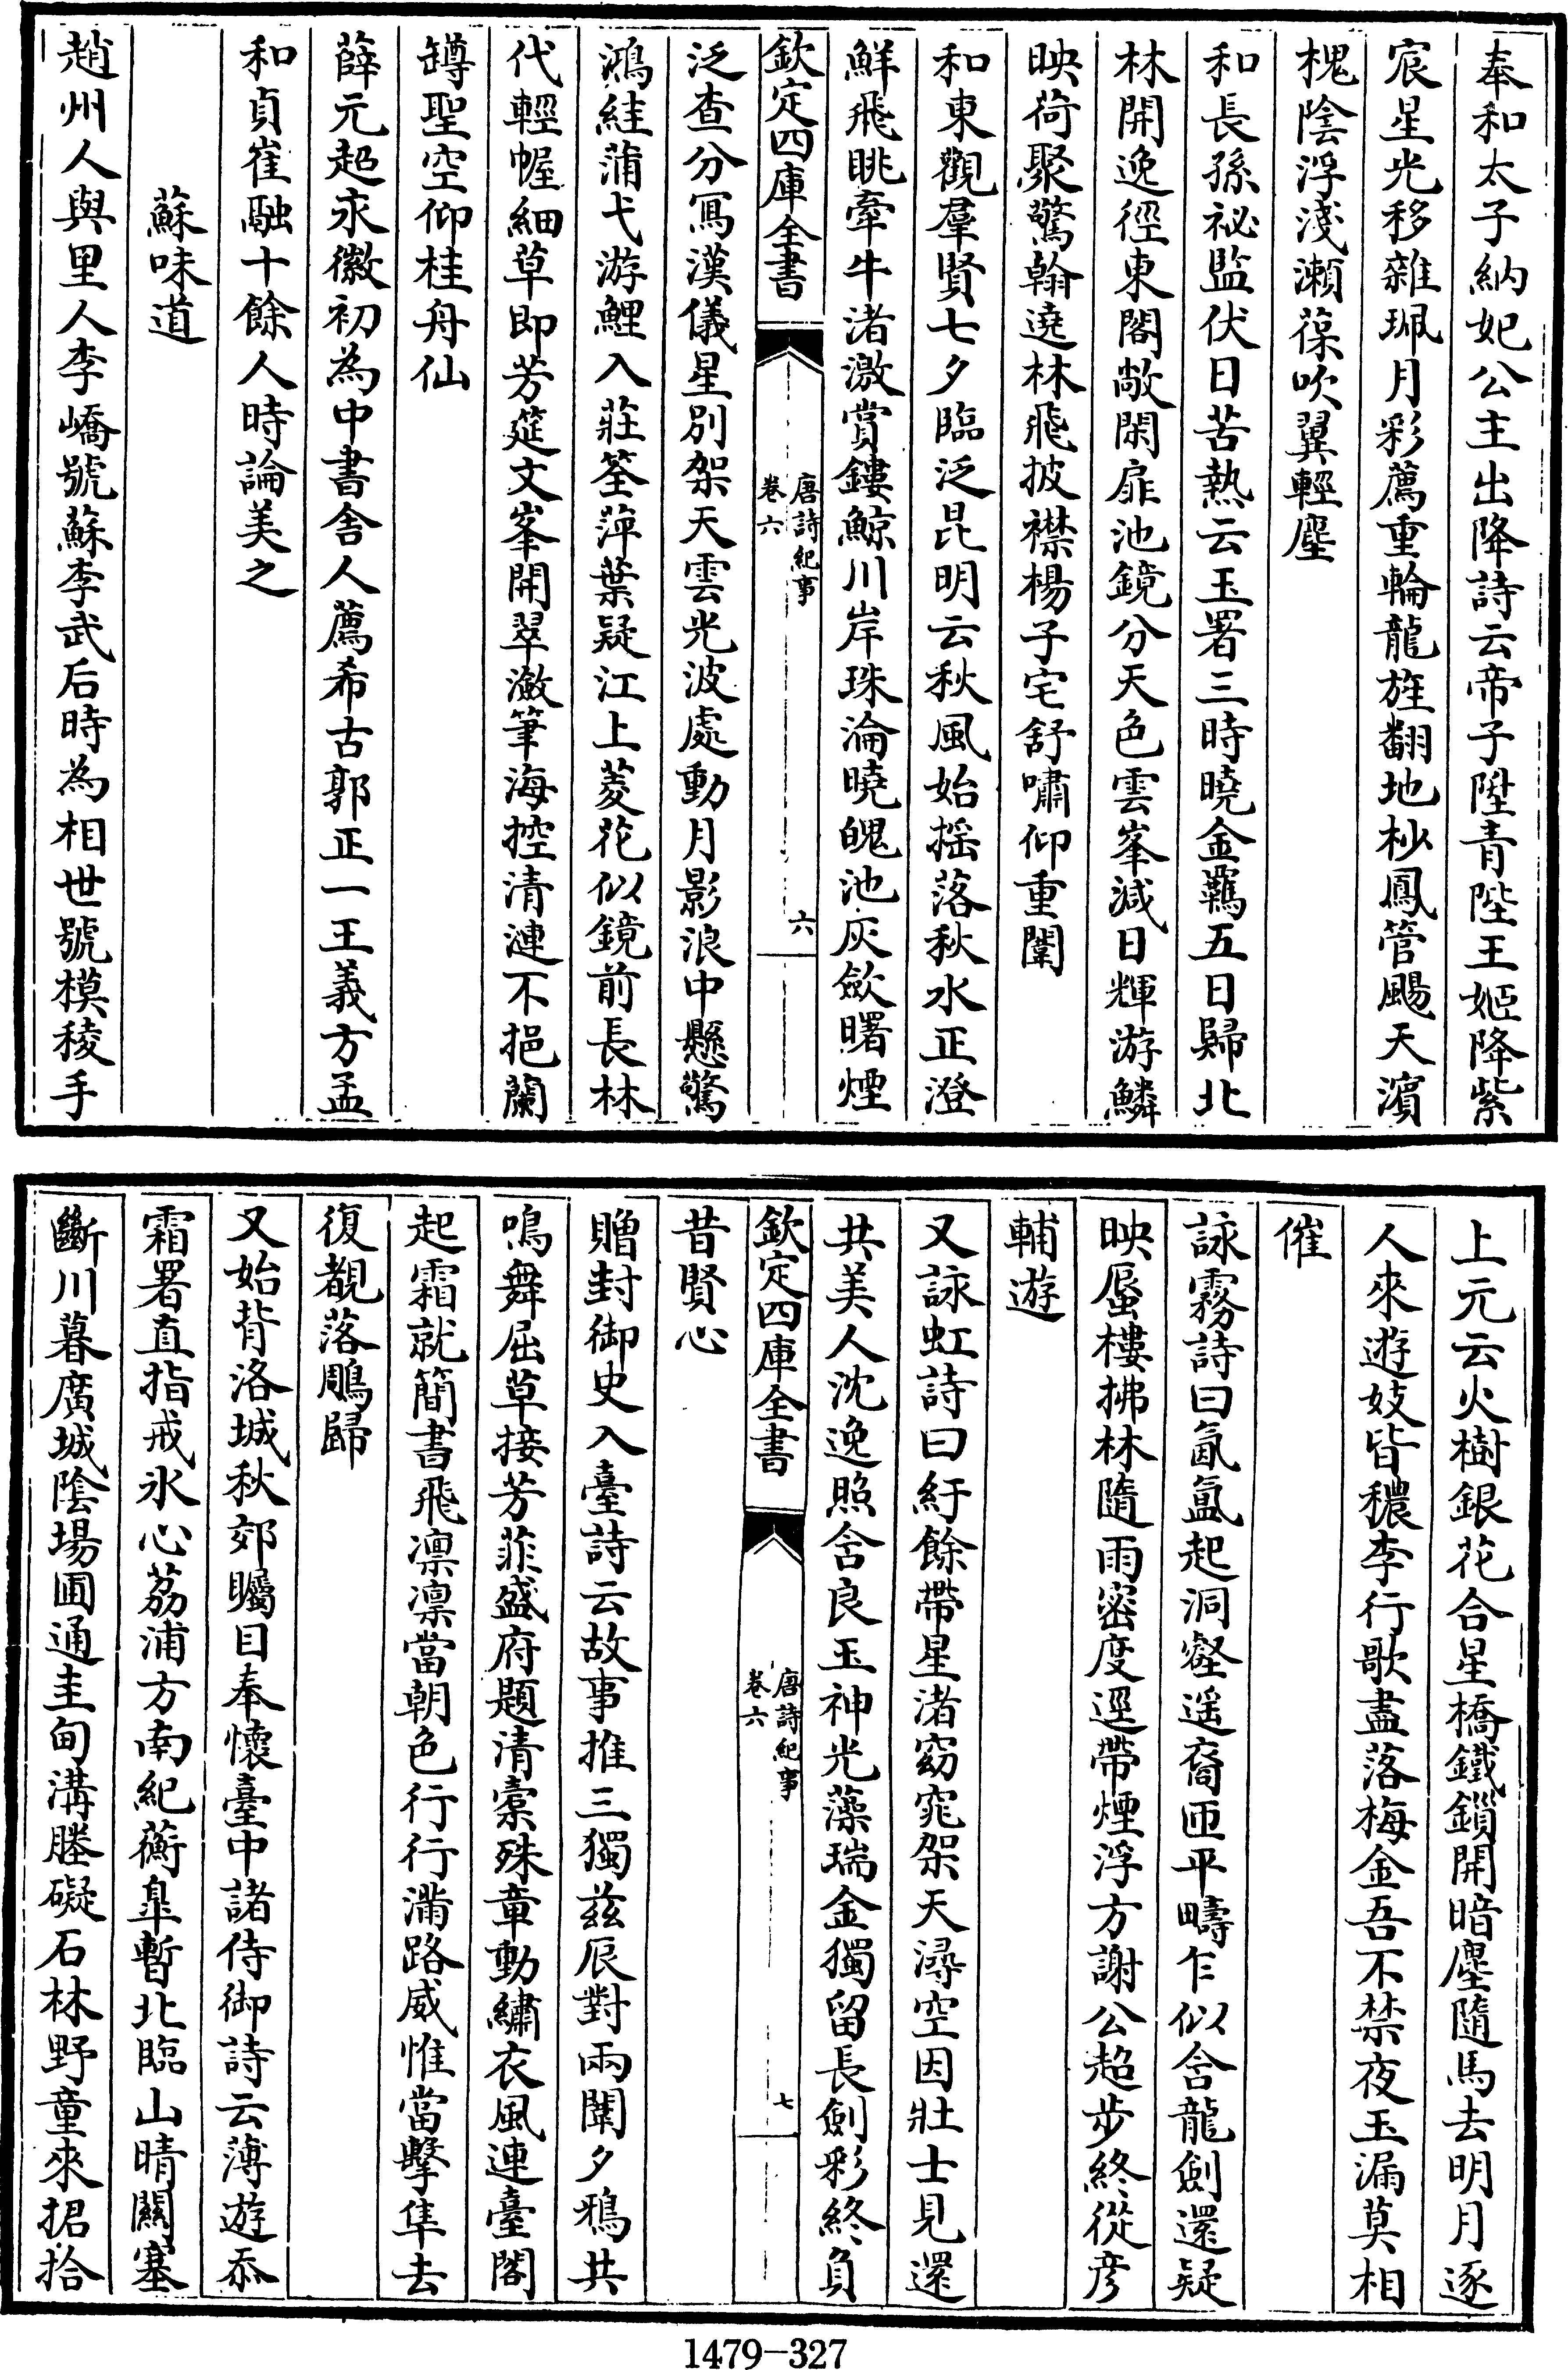 奉和太子納妃公主出降詩云帝子陞青陛王姬降紫
宸星光移雜珮月彩薦重輪龍旌翻地杪鳳管颺天濱
槐陰浮淺瀬葆吹翼輕塵
和長孫祕監伏日苦熱云玉署三時曉金羈五日歸北
林開逸徑東閣敞閑扉池鏡分天色雲峯減日輝游鱗
映荷聚驚翰遶林飛披襟楊子宅舒嘯仰重闈
和東觀羣賢七夕臨泛昆明云秋風始揺落秋水正澄
鮮飛眺牽牛渚激賞鏤鯨川岸珠淪曉魄池灰斂曙煙
欽定四庫全書
唐詩紀事
卷六
六
泛查分冩漢儀星别架天雲光波處動月影浪中懸驚
鴻絓蒲弋游鯉入莊筌萍葉疑江上菱花似鏡前長林
代輕幄細草即芳筵文峯開翠瀲筆海控清漣不挹蘭
罇聖空仰桂舟仙
薛元超永徽初為中書舍人薦希古郭正一王義方孟
和貞崔融十餘人時論美之
蘇味道
趙州人與里人李嶠號蘇李武后時為相世號模稜手
上元云火樹銀花合星橋鐵鎖開暗塵隨馬去明月逐
人來遊妓皆穠李行歌盡落梅金吾不禁夜玉漏莫相
催
詠霧詩曰氤氲起洞壑遥裔匝平疇乍似含龍劍還疑
映蜃樓拂林隨雨密度逕帶煙浮方謝公超步終從彦
輔遊
又詠虹詩曰紆餘帶星渚窈窕架天潯空因壯士見還
共美人沈逸照含良玉神光藻瑞金獨留長劍彩終負
欽定四庫全書
唐詩紀事
卷六
七
昔賢心
贈封御史入臺詩云故事推三獨兹辰對兩闈夕鴉共
鳴舞屈草接芳菲盛府題清槖殊章動繡衣風連臺閣
起霜就簡書飛凛凛當朝色行行滿路威惟當擊隼去
復覩落鵰歸
又始背洛城秋郊矚目奉懷臺中諸侍御詩云薄遊忝
霜署直指戒氷心荔浦方南紀蘅臯暫北臨山晴闗塞
斷川暮廣城陰場圃通圭甸溝塍礙石林野童來捃拾
1479-327